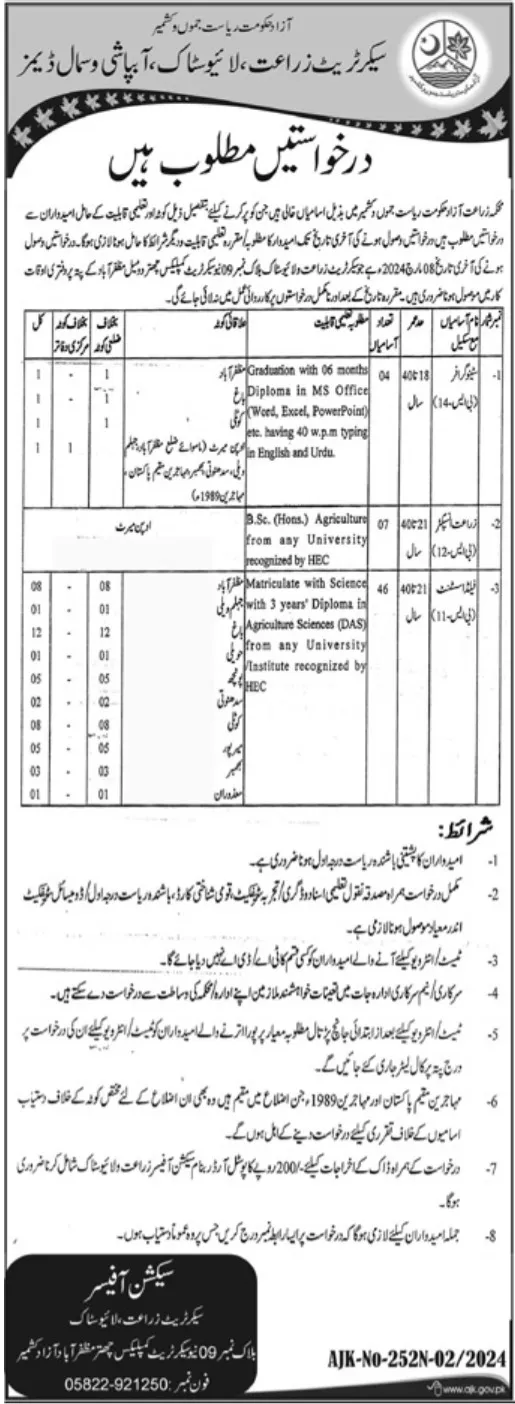 آزاد حکومت ریاست جموں و کشمیر
سیکرٹریٹ زراعت، لائیوسٹاک، آبپاشی و سمال ڈیمز
درخواستیں مطلوب ہیں
محکمہ زراعت آزاد حکومت ریاست جموں و کشمیر میں بذیل اسامیاں خالی ہیں جن کو پر کرنے کیلئے بتفصیل ذیل کوٹہ اور تعلیمی قابلیت کے حامل امیدواران سے
درخواستیں مطلوب ہیں درخواستیں وصول ہونے کی آخری تاریخ تک امیدوار کا مطلوبہ/مقررہ تعلیمی قابلیت و دیگر شرائط کا حامل ہونا لازمی ہوگا۔ درخواستیں وصول
ہونے کی آخری تاریخ 08 مارچ 2024ء ہے جو سیکرٹریٹ زراعت ولائیوسٹاک بلاک نمبر 09 نیو سیکرٹریٹ کمپلیکس چھتر دومیل مظفرآباد کے پتہ پر دفتری اوقات
کار میں موصول ہونا ضروری ہیں۔ مقررہ تاریخ کے بعد اور نامکمل درخواستوں پر کارروائی عمل میں نہ لائی جائے گی۔
نمبر شمار نام آسامیاں مع سکیل حد عمر تعداد آسامیاں مطلوبہ تعلیمی قابلیت علاقائی کوٹہ بخلاف ضلعی کوٹہ بخلاف کوٹہ مرکزی دفاتر کل
1- سٹینوگرافر (بی ایس-14) 18 تا 40 سال 04
Graduation with 06 months
Diploma in MS Office
(Word, Excel, PowerPoint)
etc. having 40 w.p.m typing
in English and Urdu.
مظفرآباد 1 - 1
باغ 1 - 1
کوٹلی 1 1
اوپن میرٹ (ماسوائے ضلع مظفرآباد، جہلم 1 1
ویلی، سدھنوتی، بھمبر، مہاجرین مقیم پاکستان،
مہاجرین 1989ء)
2- زراعت انسپکٹر (بی ایس-12) 21 تا 40 سال 07
B.Sc. (Hons.) Agriculture
from any University
recognized by HEC
اوپن میرٹ
3- فیلڈ اسسٹنٹ (بی ایس-11) 21 تا 40 سال 46
Matriculate with Science
with 3 years' Diploma in
Agriculture Sciences (DAS)
from any University
/Institute recognized by
HEC
مظفرآباد 08 - 08
جہلم ویلی 01 - 01
باغ 12 - 12
حویلی 01 - 01
پونچھ 05 - 05
سدھنوتی 02 - 02
کوٹلی 08 - 08
میرپور 05 - 05
بھمبر 03 - 03
معذوران 01 - 01
شرائط:
1- امیدواران کا پشتینی باشندہ ریاست درجہ اول ہونا ضروری ہے۔
2- مکمل درخواست ہمراہ مصدقہ نقول تعلیمی اسناد و ڈگری/تجربہ سرٹیفکیٹ، قومی شناختی کارڈ، باشندہ ریاست درجہ اول/ڈومیسائل سرٹیفکیٹ
اندر معیاد موصول ہونا لازمی ہے۔
3- ٹیسٹ/انٹرویو کیلئے آنے والے امیدواران کو کسی قسم کا ٹی اے/ڈی اے نہیں دیا جائے گا۔
4- سرکاری/نیم سرکاری ادارہ جات میں تعینات خواہشمند ملازمین اپنے ادارہ/محکمہ کی وساطت سے درخواست دے سکتے ہیں۔
5- ٹیسٹ/انٹرویو کیلئے بعد از ابتدائی جانچ پڑتال مطلوبہ معیار پر پورا اترنے والے امیدواران کو ٹیسٹ/انٹرویو کیلئے ان کی درخواست پر
درج پتہ پر کال لیٹر جاری کئے جائیں گے۔
6- مہاجرین مقیم پاکستان اور مہاجرین 1989ء جن اضلاع میں مقیم ہیں وہ بھی ان اضلاع کے لئے مختص کوٹہ کے خلاف دستیاب
اسامیوں کے خلاف تقرری کیلئے درخواست دینے کے اہل ہوں گے۔
7- درخواست کے ہمراہ ڈاک کے اخراجات کیلئے -/200 روپے کا پوسٹل آرڈر بنام سیکشن آفیسر زراعت ولائیوسٹاک شامل کرنا ضروری
ہوگا۔
8- جملہ امیدواران کیلئے لازمی ہوگا کہ درخواست پر ایسا رابطہ نمبر درج کریں جس پر وہ عموماً دستیاب ہوں۔
سیکشن آفیسر
سیکرٹریٹ زراعت، لائیوسٹاک
بلاک نمبر 09 نیو سیکرٹریٹ کمپلیکس چھتر مظفرآباد آزاد کشمیر
فون نمبر: 05822-921250
AJK-No-252N-02/2024
www.ajk.gov.pk